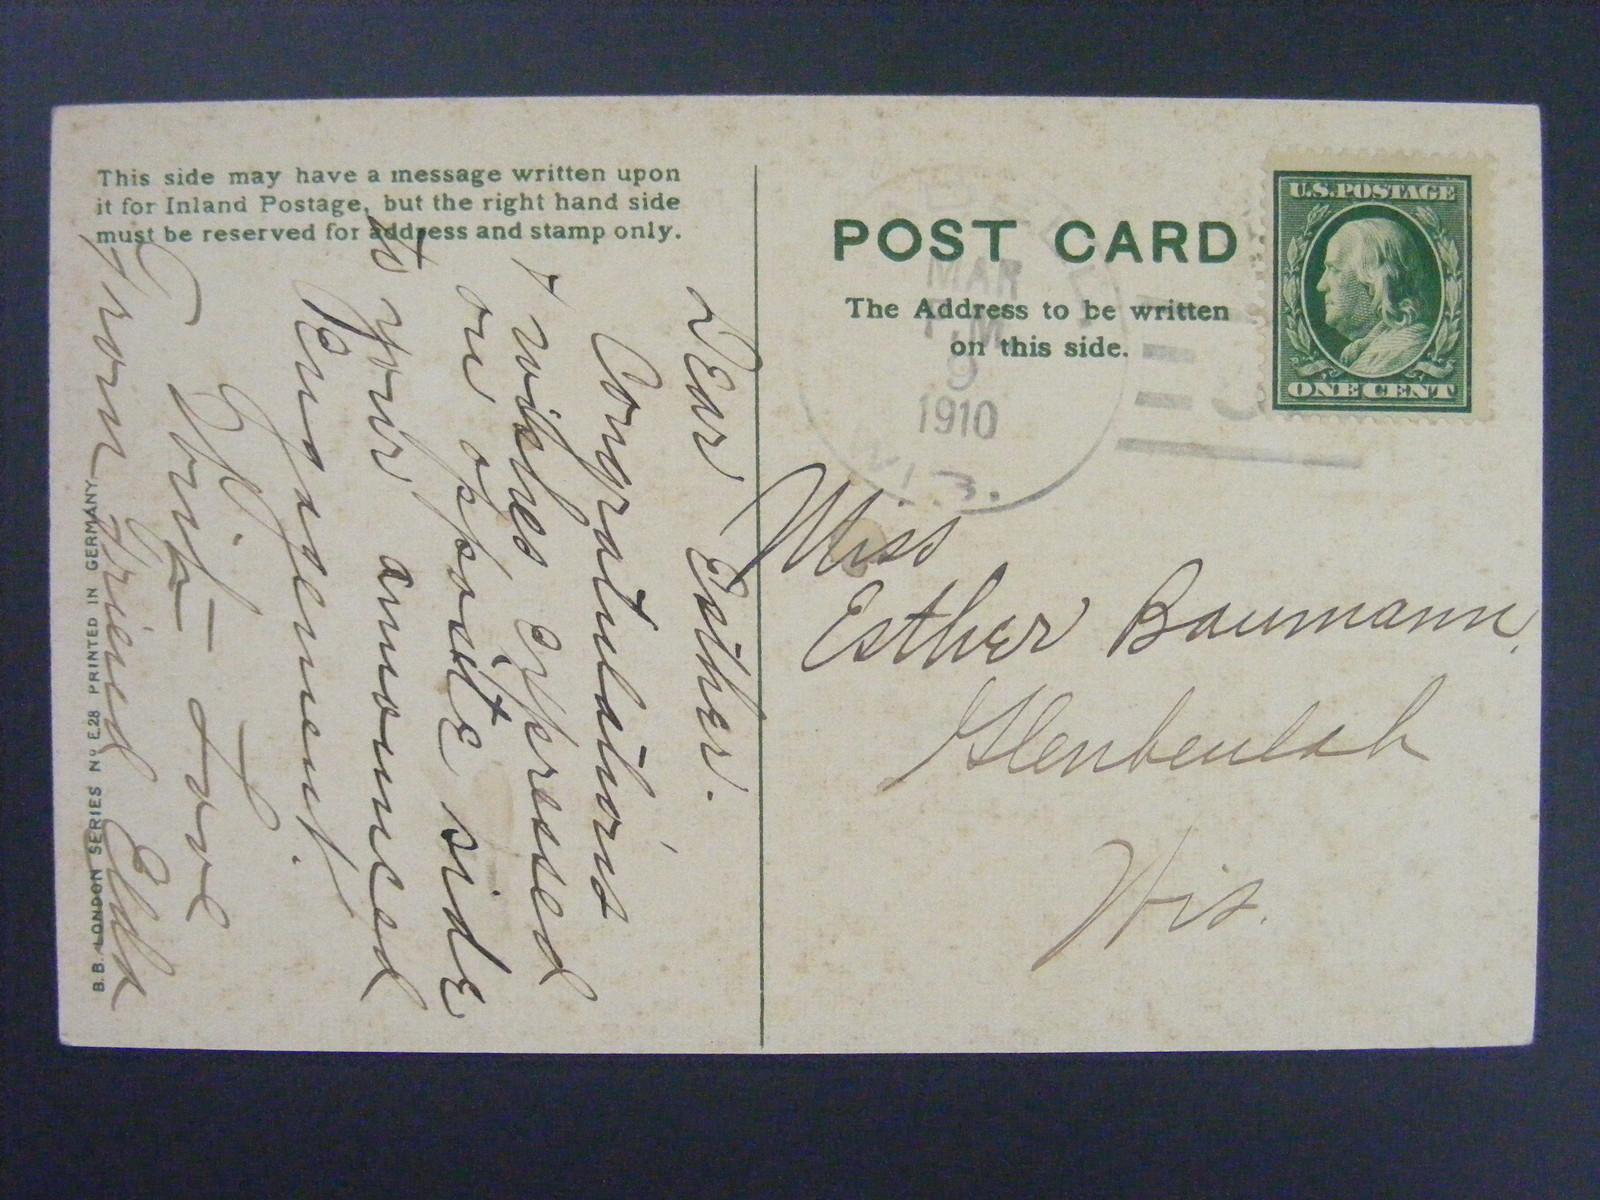 This side may have a message written upon
it for Inland Postage, but the right hand side
must be reserved for address and stamp only.
Dear Esther.
Congratulations
& wishes expressed
on opposite side
to your announced
Engagement.
Love
From Friend Elda
B.B. LONDON SERIES No E.28 PRINTED IN GERMANY
POST CARD
The Address to be written
on this side.
MAR
P.M.
9
1910
WIS.
U.S. POSTAGE
ONE CENT
Miss
Esther Baumann,
Glenbeulah
Wis.